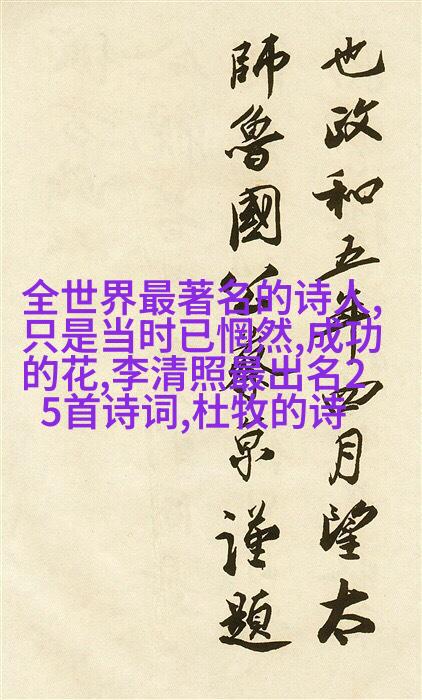 也政和五年四月望太
師魯國公蔡京謹題
全世界最著名的诗人,
只是当时已惘然,成功
的花,李清照最出名2
5首诗词,杜牧的诗